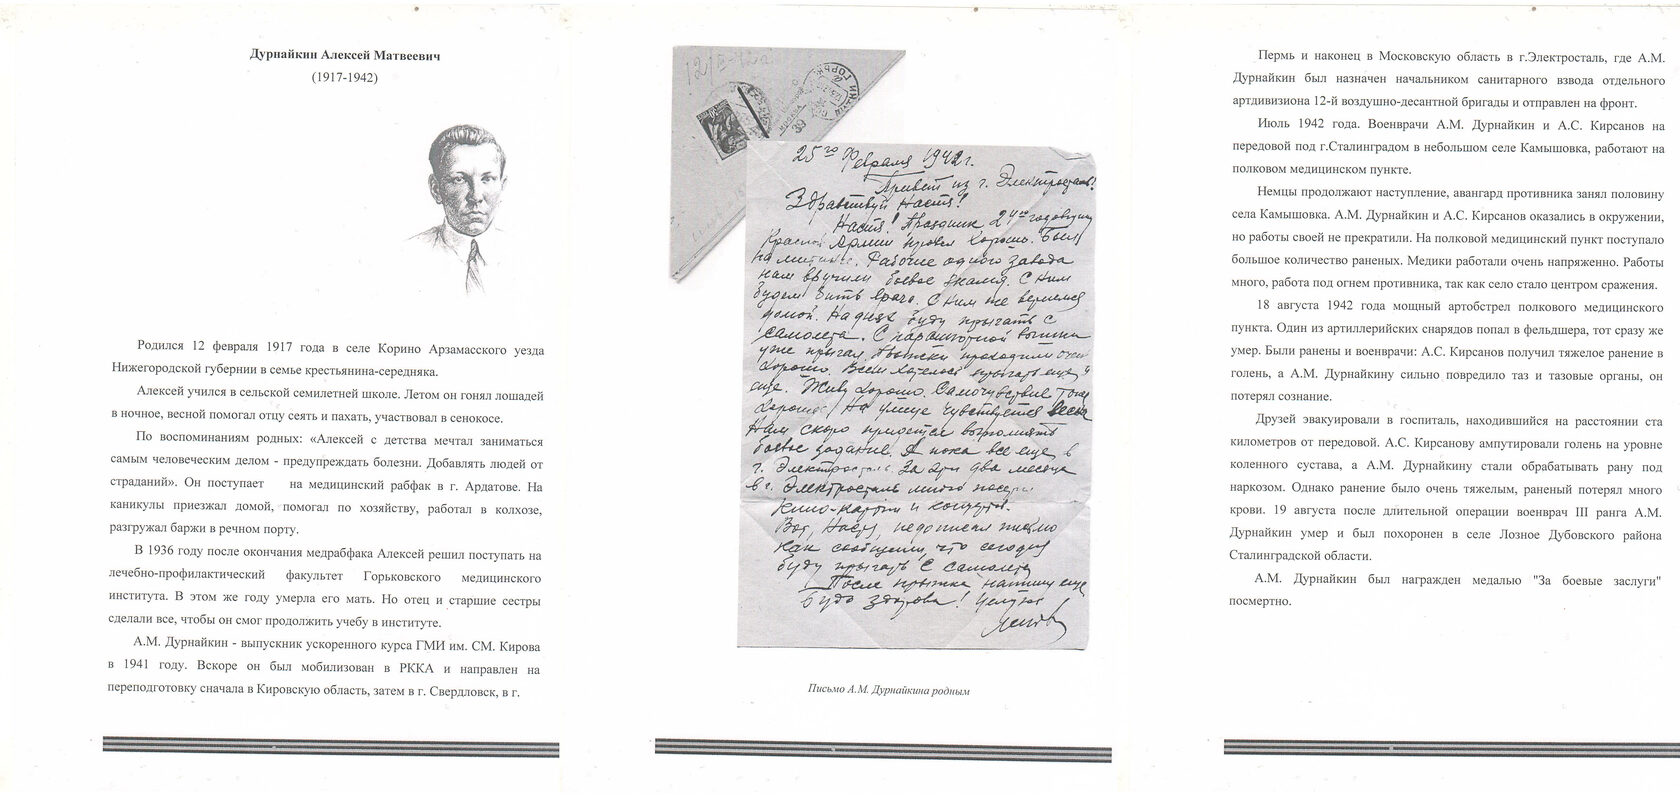 Дурнайкин Алексей Матвеевич
(1917-1942)
Родился 12 февраля 1917 года в селе Корино Арзамасского уезда
Нижегородской губернии в семье крестьянина-середняка.
Алексей учился в сельской семилетней школе. Летом он гонял лошадей
в ночное, весной помогал отцу сеять и пахать, участвовал в сенокосе.
По воспоминаниям родных: «Алексей с детства мечтал заниматься
самым человеческим делом - предупреждать болезни. Добавлять людей от
страданий». Он поступает на медицинский рабфак в г. Ардатове. На
каникулы приезжал домой, помогал по хозяйству, работал в колхозе,
разгружал баржи в речном порту.
В 1936 году после окончания медрабфака Алексей решил поступать на
лечебно-профилактический факультет Горьковского медицинского
института. В этом же году умерла его мать. Но отец и старшие сестры
сделали все, чтобы он смог продолжить учебу в институте.
А.М. Дурнайкин - выпускник ускоренного курса ГМИ им. СМ. Кирова
в 1941 году. Вскоре он был мобилизован в РККА и направлен на
переподготовку сначала в Кировскую область, затем в г. Свердловск, в г.
25го Февраля 1942г.
Привет из г. Электросталь!
Здравствуй Настя!
Настя! Праздник 24ую годовщину
Красной Армии провел хорошо. Был
на митинге. Рабочие одного завода
нам вручили боевое знамя. С ним
будем бить врага. С ним же вернемся
домой. На днях буду прыгать с
самолета. С парашютной вышки
уже прыгал. Прыжки проходили очень
хорошо. Всем хотелось прыгать еще и
еще. Живу хорошо. Самочувствие тоже
хорошее. На улице чувствуется весна
Нам скоро придется выполнять
боевое задание. А пока все еще в
г. Электросталь. За эти два месяца
в г. Электросталь много посетил
кино-картин и концертов.
Вот, Настя, недописал письмо
как сообщили, что сегодня
буду прыгать с самолета
После прыжка напишу еще
Будь здорова! Целую
Письмо А.М. Дурнайкина родным
Пермь и наконец в Московскую область в г.Электросталь, где А.М.
Дурнайкин был назначен начальником санитарного взвода отдельного
артдивизиона 12-й воздушно-десантной бригады и отправлен на фронт.
Июль 1942 года. Военврачи А.М. Дурнайкин и А.С. Кирсанов на
передовой под г.Сталинградом в небольшом селе Камышовка, работают на
полковом медицинском пункте.
Немцы продолжают наступление, авангард противника занял половину
села Камышовка. А.М. Дурнайкин и А.С. Кирсанов оказались в окружении,
но работы своей не прекратили. На полковой медицинский пункт поступало
большое количество раненых. Медики работали очень напряженно. Работы
много, работа под огнем противника, так как село стало центром сражения.
18 августа 1942 года мощный артобстрел полкового медицинского
пункта. Один из артиллерийских снарядов попал в фельдшера, тот сразу же
умер. Были ранены и военврачи: А.С. Кирсанов получил тяжелое ранение в
голень, а А.М. Дурнайкину сильно повредило таз и тазовые органы, он
потерял сознание.
Друзей эвакуировали в госпиталь, находившийся на расстоянии ста
километров от передовой. А.С. Кирсанову ампутировали голень на уровне
коленного сустава, а А.М. Дурнайкину стали обрабатывать рану под
наркозом. Однако ранение было очень тяжелым, раненый потерял много
крови. 19 августа после длительной операции военврач III ранга А.М.
Дурнайкин умер и был похоронен в селе Лозное Дубовского района
Сталинградской области.
А.М. Дурнайкин был награжден медалью "За боевые заслуги"
посмертно.